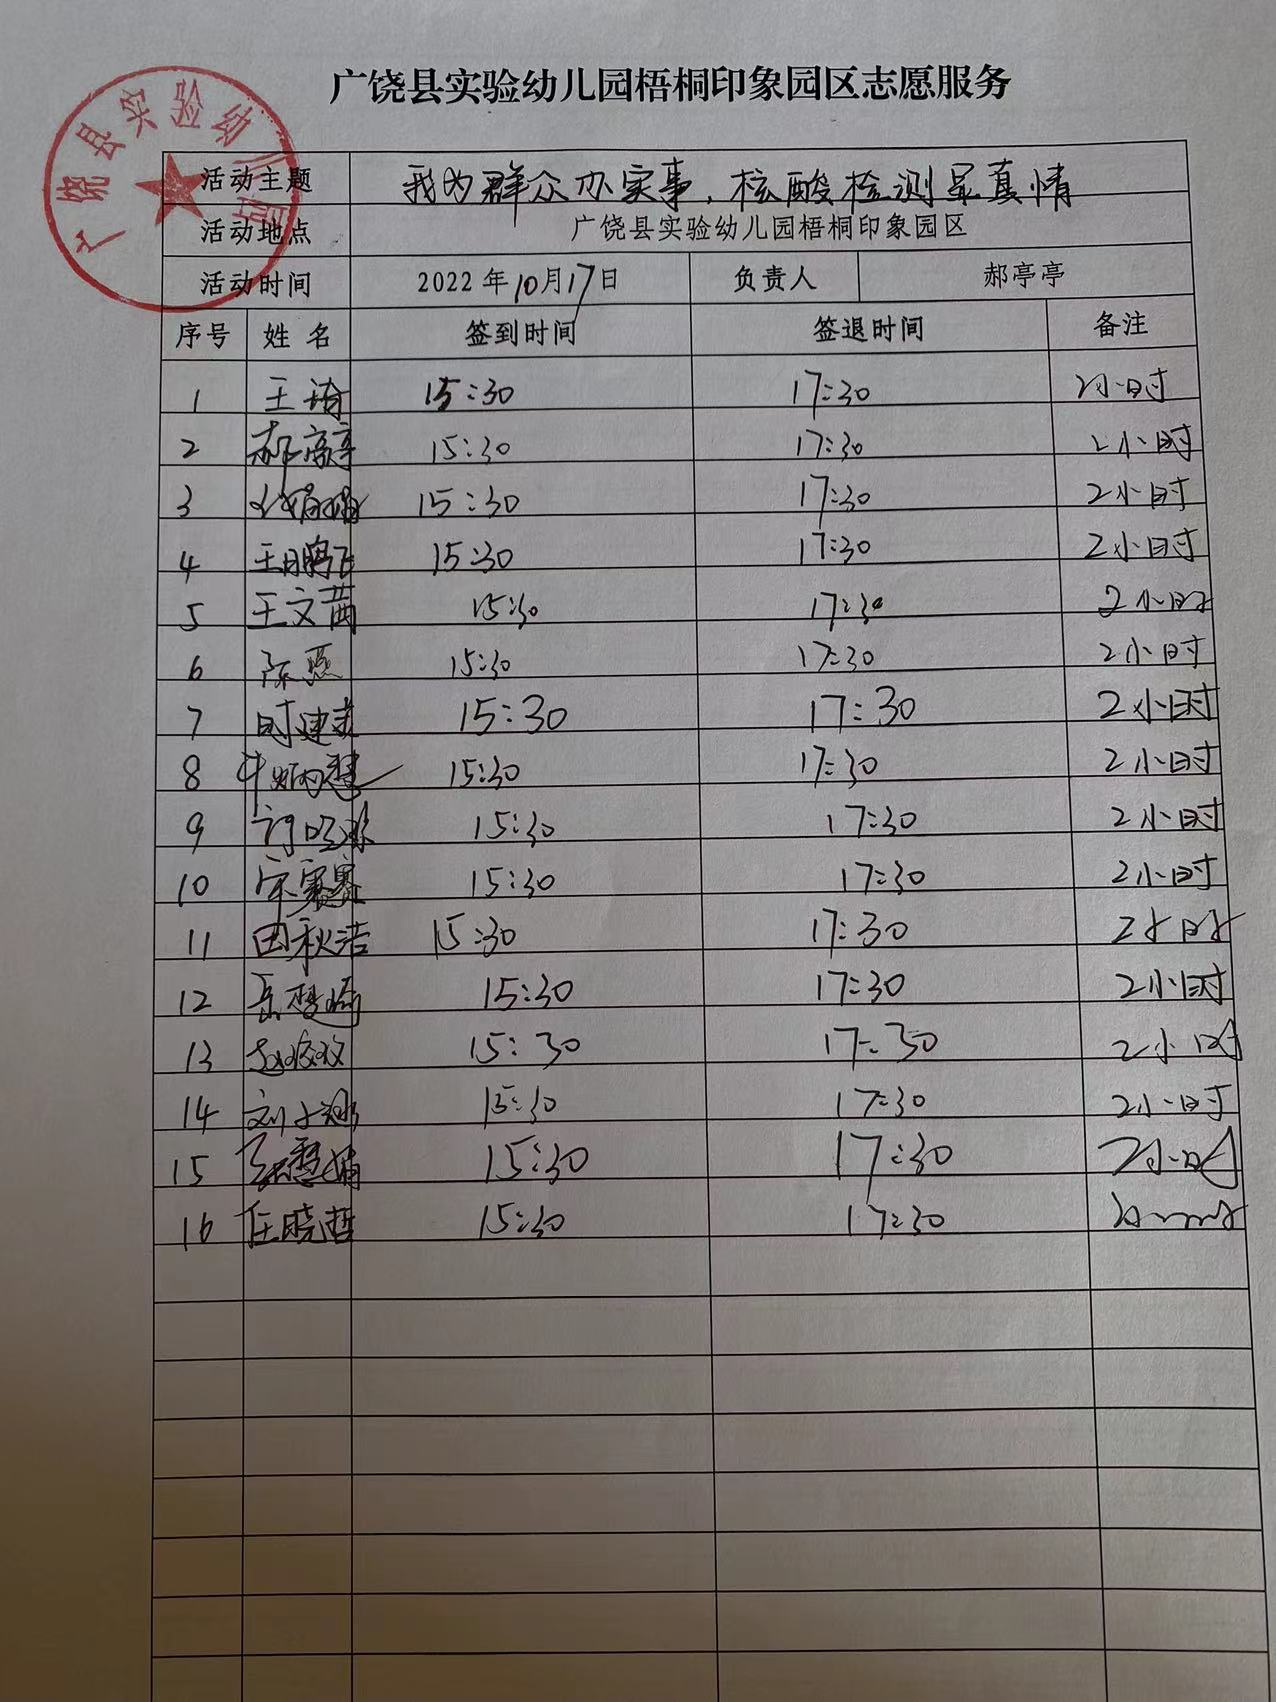 广饶县实验幼儿园梧桐印象园区志愿服务
广饶县实验幼儿园
活动主题 我为群众办实事,核酸检测显真情
活动地点 广饶县实验幼儿园梧桐印象园区
活动时间 2022年10月17日 负责人 郝亭亭
序号 姓名 签到时间 签退时间 备注
1 王琦 15:30 17:30 2小时
2 15:30 17:30 2小时
3 15:30 17:30 2小时
4 王鹏飞 15:30 17:30 2小时
5 王文茜 15:30 17:30 2小时
6 陈燕 15:30 17:30 2小时
7 15:30 17:30 2小时
8 15:30 17:30 2小时
9 15:30 17:30 2小时
10 宋赛赛 15:30 17:30 2小时
11 田秋洁 15:30 17:30 2小时
12 15:30 17:30 2小时
13 15:30 17:30 2小时
14 15:30 17:30 2小时
15 15:30 17:30 2小时
16 任晓哲 15:30 17:30